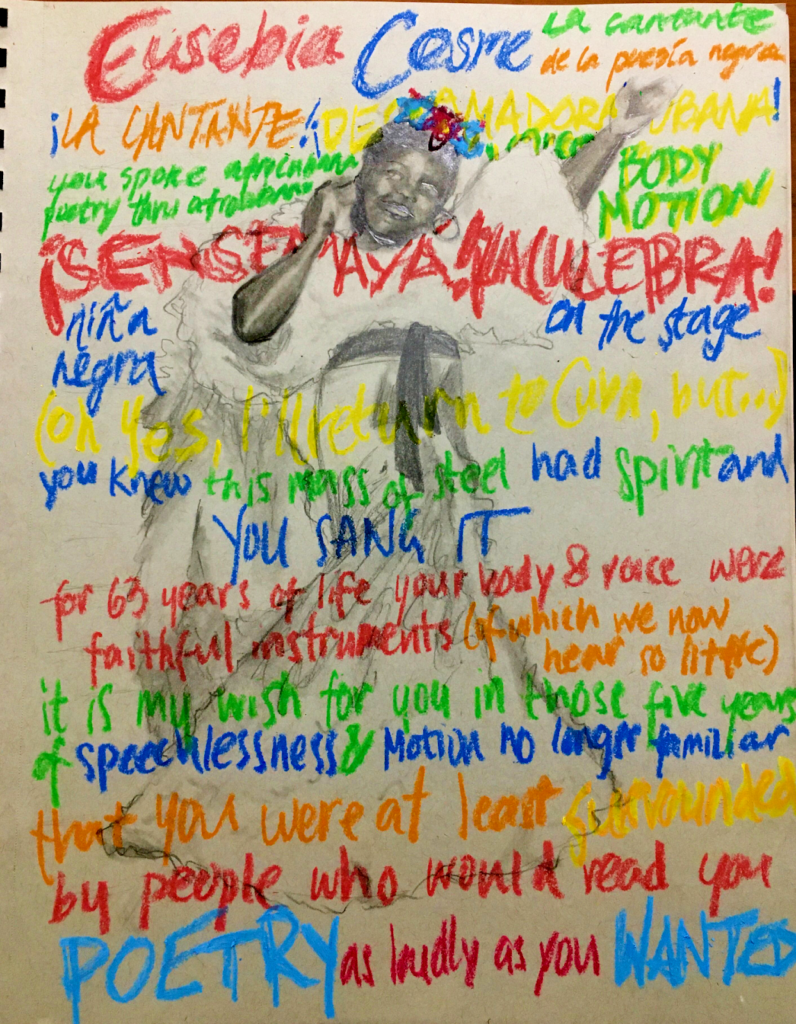 Eusebia Cosme
La cantante
de la poesía negra
¡LA CANTANTE! ¡DECLAMADORA CUBANA!
you spoke afrocubana
poetry thru afrocubano
BODY
MOTION
¡SENSEMAYA! ¡LA CULEBRA!
niña
negra
on the stage
(oh yes, I'll return to Cuba, but...)
you knew this mass of steel had spirit and
YOU SANG IT
for 63 years of life your body & voice were
faithful instruments (of which we now
hear so little)
it is my wish for you in those five years
of speechlessness & motion no longer familiar
that you were at least surrounded
by people who would read you
POETRY as loudly as you WANTED